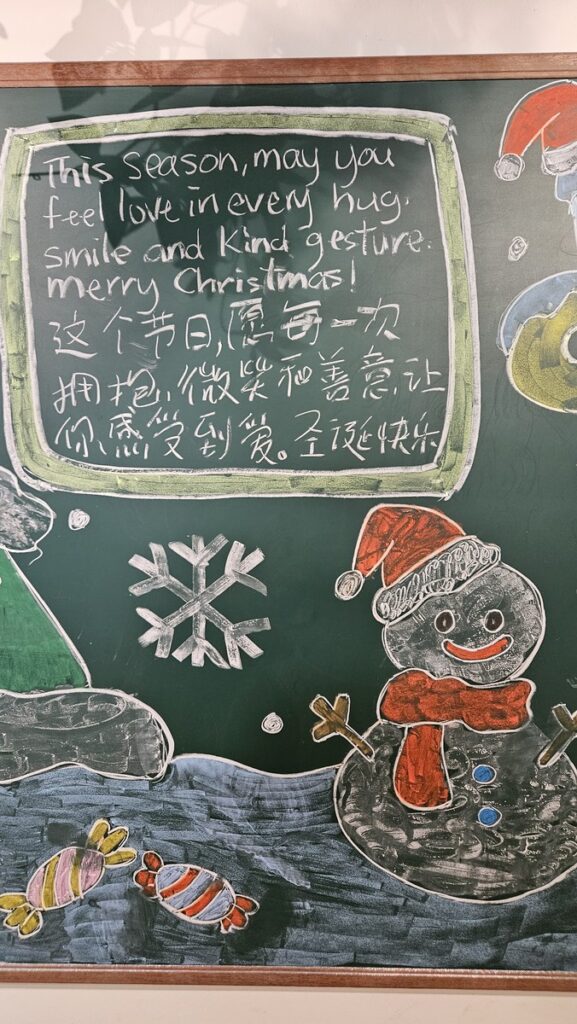 This season, may you
feel love in every hug.
smile and kind gesture.
merry Christmas!
这个节日,愿每一次
拥抱,微笑和善意,让
你感受到爱。圣诞快乐